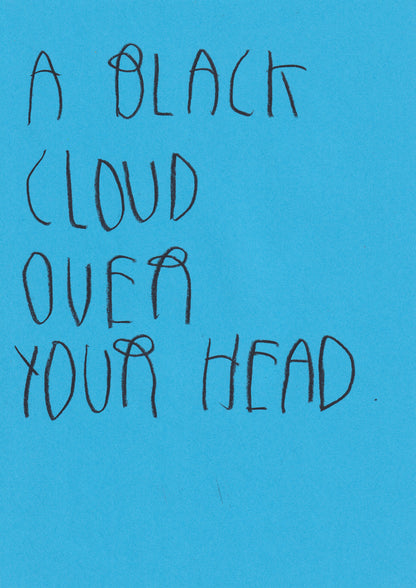 A BLACK
CLOUD
OVER
YOUR HEAD